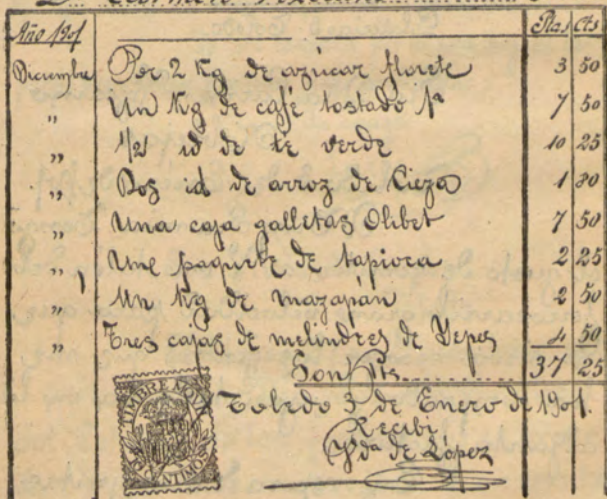 Año 1901 Ptas Cts
Diciembre Por 2 Kg de azúcar florete 3 50
" Un Kg de café tostado 1ª 7 50
" 1/2 id de te verde 10 25
" Dos id de arroz de Cieza 1 80
" Una caja galletas Olibet 7 50
" Une paquete de tapioca 2 25
" Un Kg de mazapán 2 50
" Tres cajas de melindres de Yepes 4 50
Son Pts 37 25
Toledo 3 de Enero de 1901.
Recibí
Vda de López
TIMBRE MOVIL
CENTIMOS